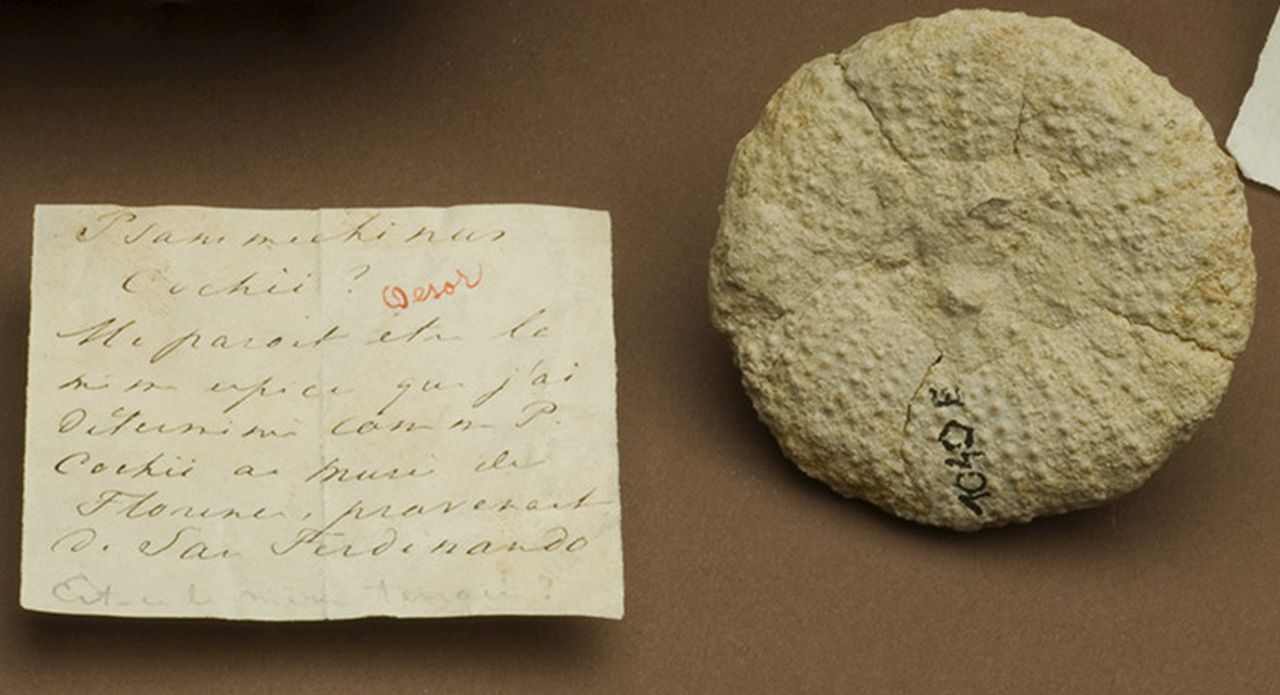 Psammechinus
Cochii ? Desor
Me parait être la
même espèce que j'ai
déterminé comme P.
Cochii au musé de
Florence, provenant
de San Ferdinando
Est-ce le même terrain ?
1040 E